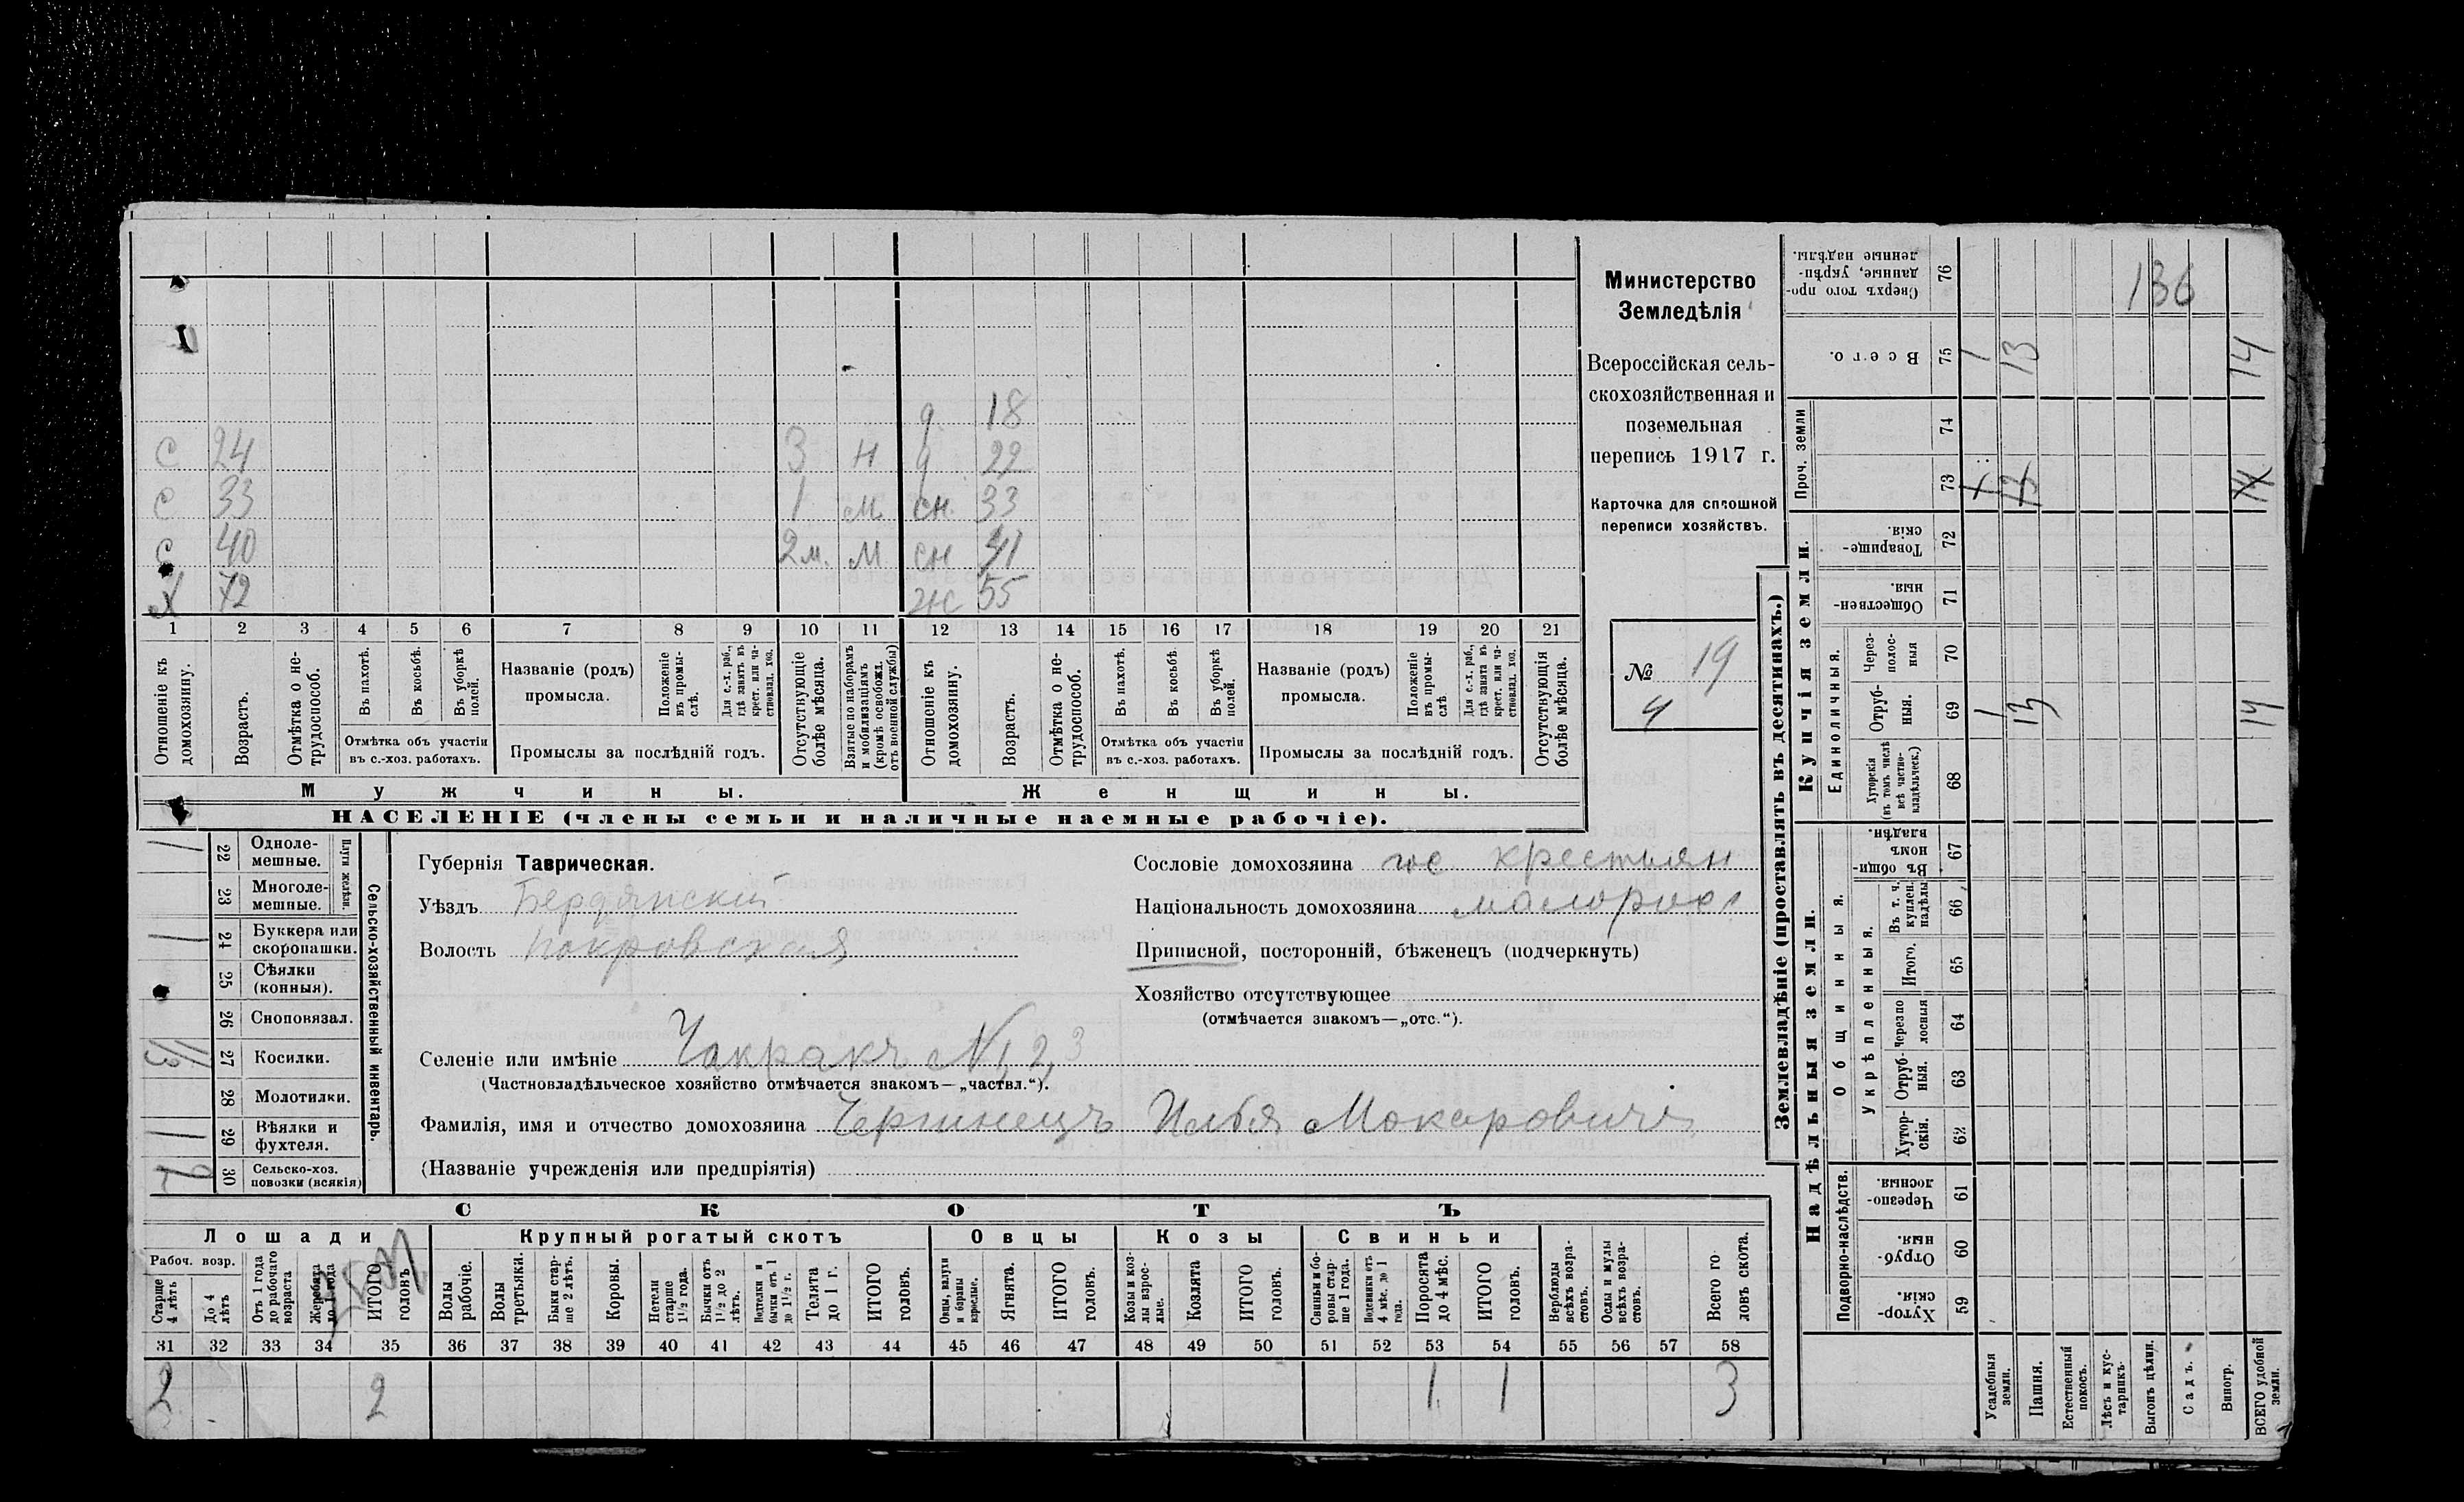 д 18
С 24 3 н д 22
С 33 1 м сн. 33
С 40 2 м. м сн 41
Х 72 ж 55
1 2 3 4 5 6 7 8 9 10 11 12 13 14 15 16 17 18 19 20 21
Отношеніе къ домохозяину.
Возрастъ.
Отмѣтка о не-трудоспособ.
Въ пахотѣ.
Въ косьбѣ.
Въ уборкѣ полей.
Отмѣтка объ участіи
въ с.-хоз. работахъ.
Названіе (родъ)
промысла.
Положеніе въ промы-слѣ.
Для с.-х. раб., гдѣ занятъ въ крест. или ча-ствовлад. хоз.
Промыслы за послѣдній годъ.
Отсутствующіе болѣе мѣсяца.
Взятые по наборамъ и мобилизаціямъ (кромѣ освобожд. отъ военной службы)
Отношеніе къ домохозяину.
Возрастъ.
Отмѣтка о не-трудоспособ.
Въ пахотѣ.
Въ косьбѣ.
Въ уборкѣ полей.
Отмѣтка объ участіи
въ с.-хоз. работахъ.
Названіе (родъ)
промысла.
Положеніе въ промы-слѣ
Для с.-х. раб., гдѣ занята въ крест. или ча-ствовлад. хоз.
Промыслы за послѣдній годъ.
Отсутствующія болѣе мѣсяца.
Мужчины.
Женщины.
НАСЕЛЕНІЕ (члены семьи и наличные наемные рабочіе).
Министерство
Земледѣлія
Всероссійская сель-
скохозяйственная и
поземельная
перепись 1917 г.
Карточка для сплошной
переписи хозяйствъ.
№ 19
4
1 22 Одноле-мешные.
23 Многоле-мешные.
Плуги желѣзн.
1 24 Буккера или скоропашки.
25 Сѣялки (конныя).
26 Сноповязал.
1/3 27 Косилки.
28 Молотилки.
1 29 Вѣялки и фухтеля.
30 Сельско-хоз. повозки (всякія)
Сельско-хозяйственный инвентарь.
Губернія Таврическая.
Уѣздъ Бердянскій
Волость Покровская
Селеніе или имѣніе Чокракъ № 1, 2, 3
(Частновладѣльческое хозяйство отмѣчается знакомъ—„частвл.“).
Фамилія, имя и отчество домохозяина Чернинецъ Илья Мокаровичъ
(Названіе учрежденія или предпріятія)
Сословіе домохозяина гос крестьян
Національность домохозяина малорос
Приписной, посторонній, бѣженецъ (подчеркнуть)
Хозяйство отсутствующее
(отмѣчается знакомъ—„отс.“).
СКОТЪ
Лошади
Крупный рогатый скотъ
Овцы
Козы
Свиньи
Рабоч. возр.
Старше 4 лѣтъ
До 4 лѣтъ
Отъ 1 года до рабочаго возраста
Жеребята до 1 года
ИТОГО головъ
Волы рабочіе.
Волы третьяки.
Быки стар-ше 2 лѣтъ.
Коровы.
Нетели старше 1½ года.
Бычки отъ 1½ до 2 лѣтъ.
Подтелки и бычки отъ 1 до 1½ г.
Телята до 1 г.
ИТОГО головъ.
Овцы, валухи и бараны взрослые.
Ягнята.
ИТОГО головъ.
Козы и коз-лы взрос-лые.
Козлята
ИТОГО головъ.
Свиньи и бо-ровы стар-ше 1 года.
Подсвинки отъ 4 мѣс. до 1 года.
Поросята до 4 мѣс.
ИТОГО головъ.
Верблюды всѣхъ возра-стовъ.
Ослы и мулы всѣхъ возра-стовъ.
Всего го-ловъ скота.
31 32 33 34 35 36 37 38 39 40 41 42 43 44 45 46 47 48 49 50 51 52 53 54 55 56 57 58
2 2 1 1 3
Землевладѣніе (проставлять въ десятинахъ.)
Купчія земли.
Надѣльныя земли.
Сверхъ того про-данные, укрѣп-ленные надѣлы. 76 136
Всего. 75 1 13 14
Проч. земли
74
73 1 13 14
Товарище-скія. 72
Обществен-ныя. 71
Единоличныя.
Через-полос-ныя 70
Отруб-ныя. 69 1 13 14
Хуторскія (въ томъ числѣ всѣ частно-владѣльческ.) 68
Общинныя.
Въ общин-номъ владѣн. 67
Укрѣпленныя.
Въ т. ч. куплен. надѣлы 66
Итого. 65
Черезпо-лосныя 64
Отруб-ныя. 63
Хутор-скія. 62
Подворно-наслѣдств.
Черезпо-лосныя. 61
Отруб-ныя. 60
Хутор-скія. 59
Усадебныя земли.
Пашня.
Естественный покосъ.
Лѣсъ и кус-тарникъ.
Выгонъ цѣлин.
Садъ.
Виногр.
ВСЕГО удобной земли.